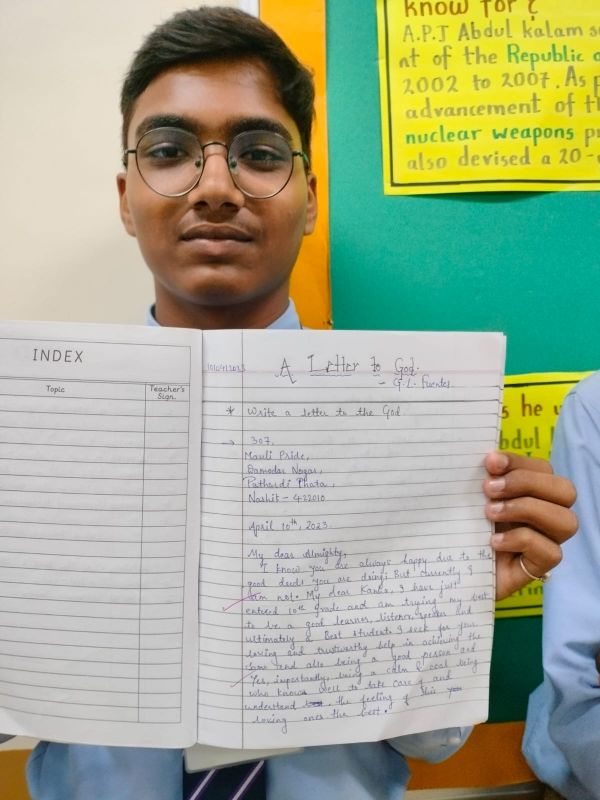 know for ?
A.P.J Abdul kalam s
nt of the Republic o
2002 to 2007. As p
advancement of th
nuclear weapons p
also devised a 20-
s he u
bdul
INDEX
Topic
Teacher's
Sign.
10/04/2023
A Letter to God.
- G.L. Fuentes.
* Write a letter to the God.
→ 307,
Mauli Pride,
Damodar Nagar,
Pathardi Phata,
Nashik - 422010
April 10th, 2023
My dear Almighty,
I know you are always happy due to the
good deeds you are doing! But currently I
am not. My dear Kanha, I have just
entered 10th grade and am trying my best
to be a good learner, listener, speaker and
ultimately a Best student. I seek for your
loving and trustworthy help in achieving the
same and also being a good person and
Yes, importantly, being a calm & cool being
who knows well to take care of and
understand the feeling of His
loving ones the best.